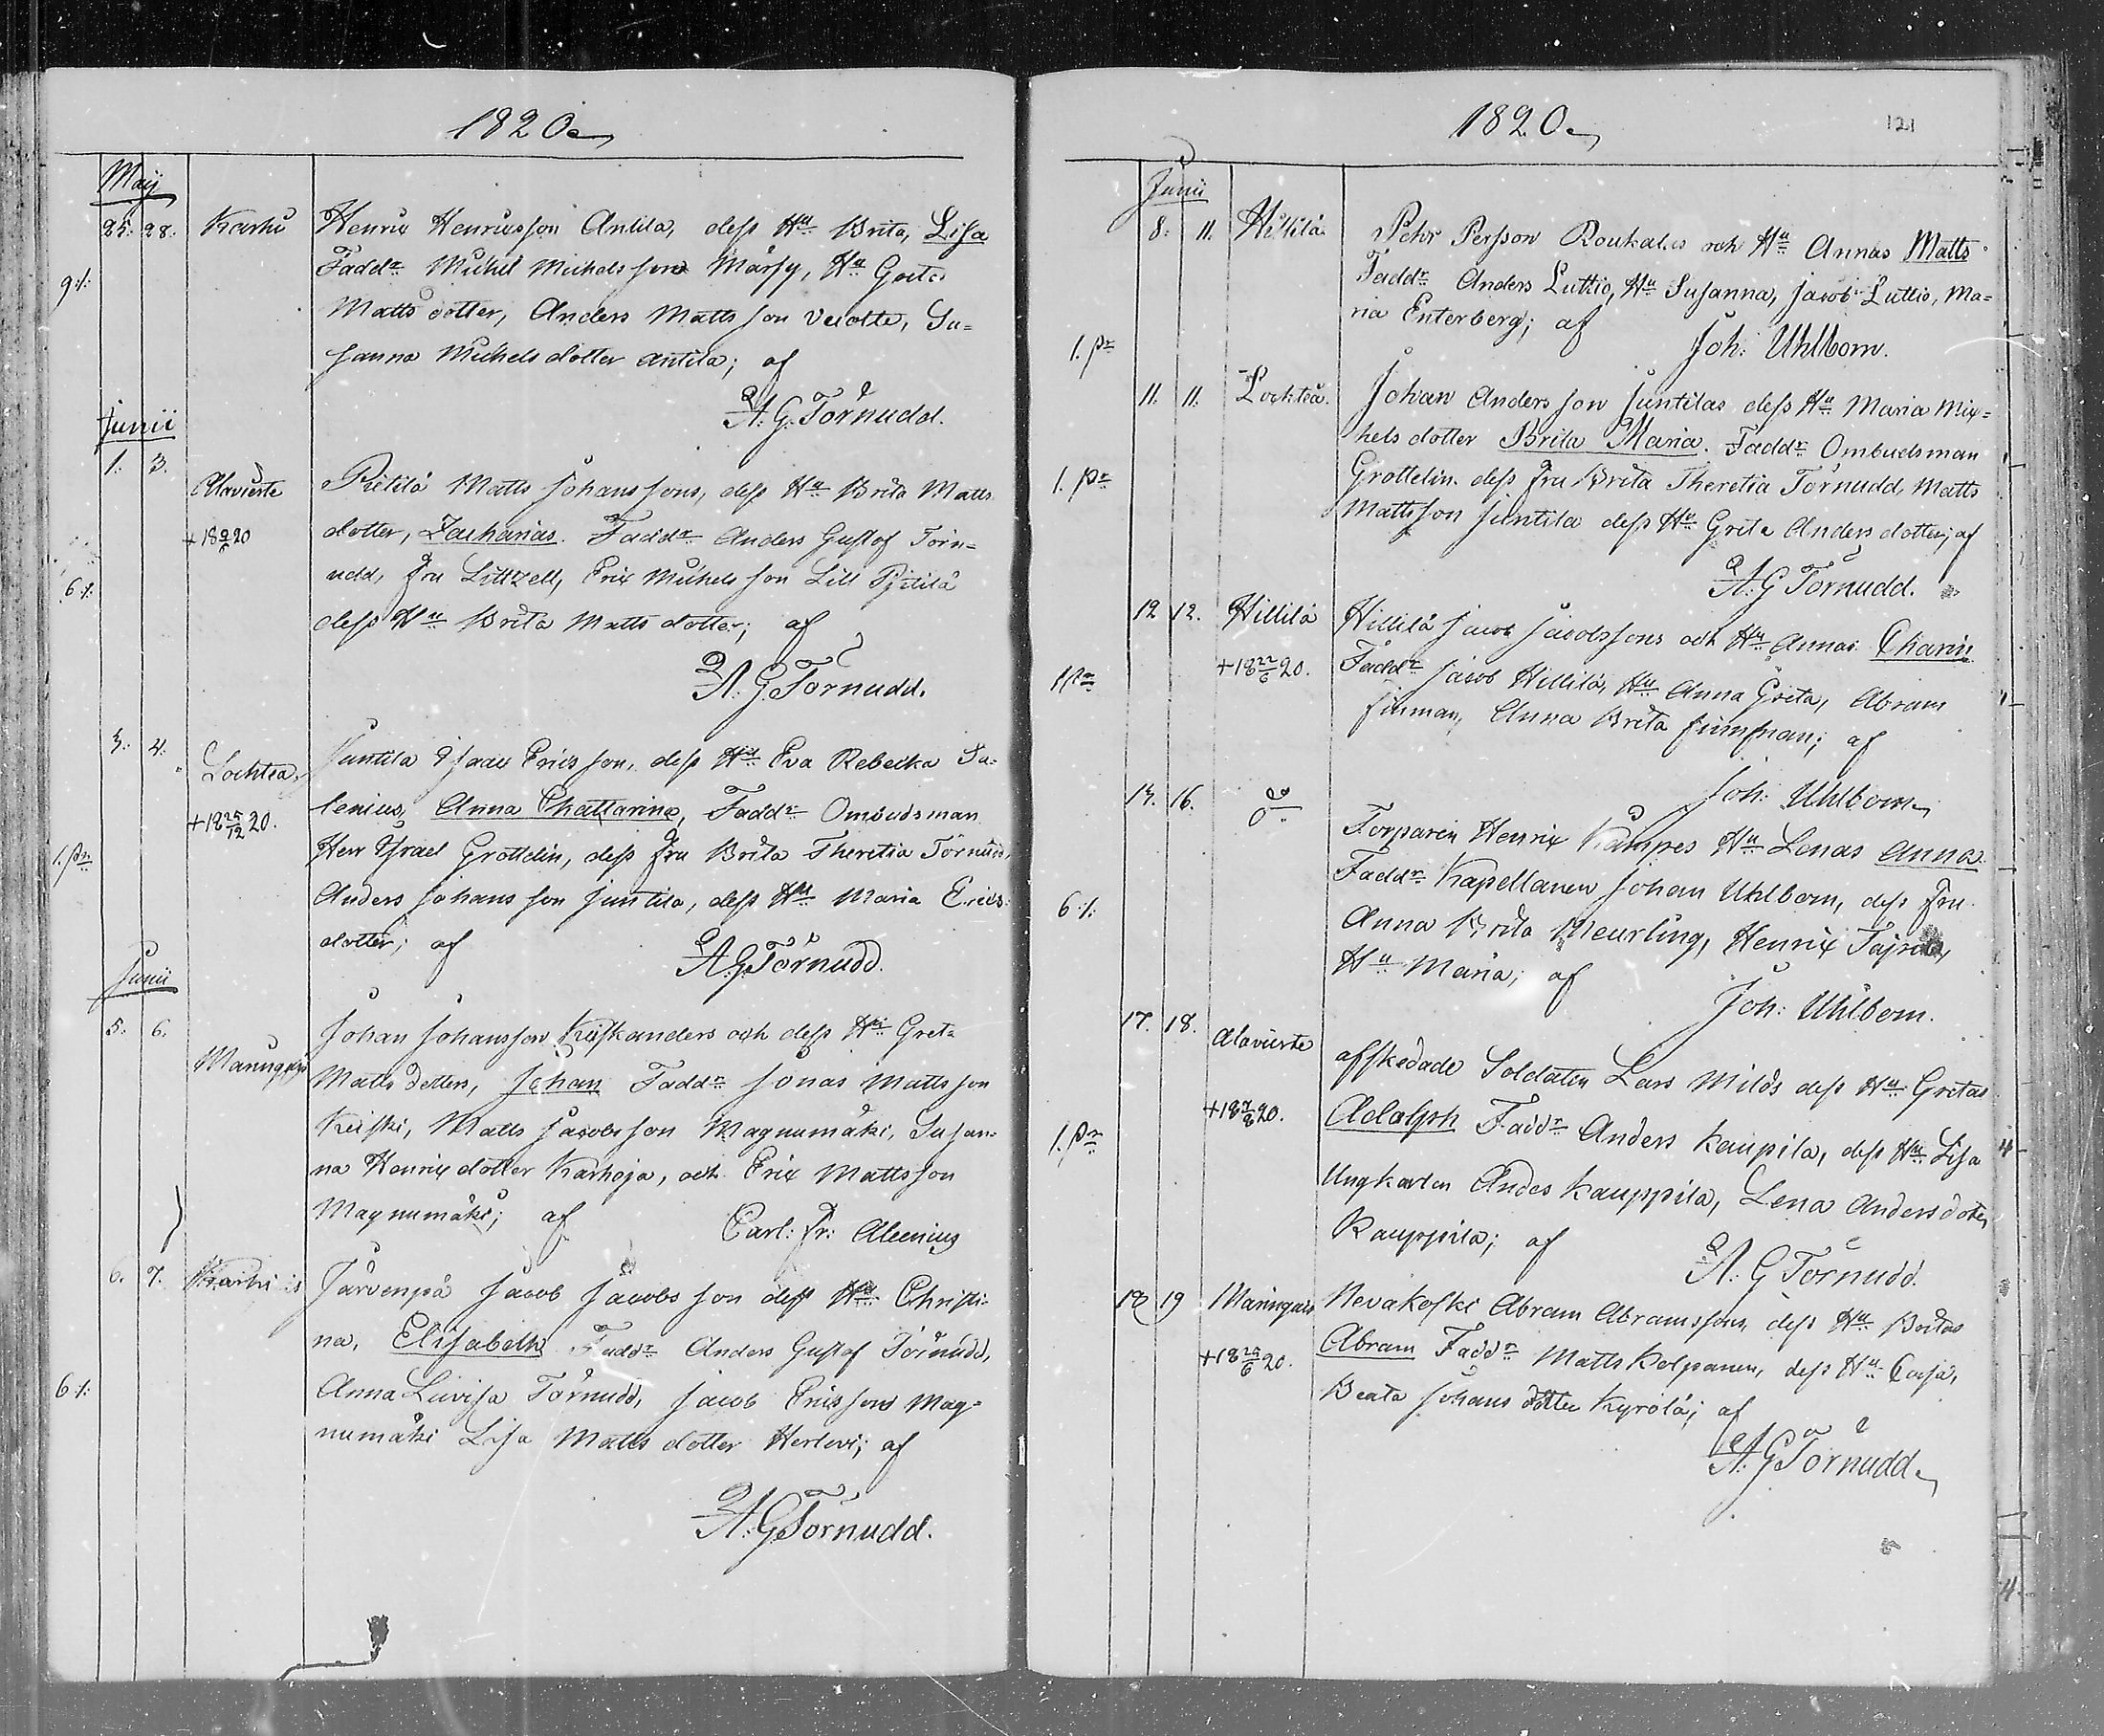 1820
Maij
25. 28. Karhi Henric Henricsson Antila, dess Hu Brita, Lisa
Faddr Michel Michelsson Märsy, Hu Greta
9 /:
Matts dotter, Anders Mattsson Veiolte, Su=
sanna Michelsdotter Antila; af
A. G. Törnudd.
Junii
1. 3. Alavieste Pietilä Matts Johanssons, dess Hu Brita Matts
+18 9/6 20 dotter, Zacharias. Faddr Anders Gustof Törn=
6 /: udd, Fru Littzell, Eric Michelsson Lill Pjetilä
dess Hu Brita Matts dotter; af
A. G. Törnudd.
3. 4. Lochtea Juntila Isaac Ericsson, dess Hu Eva Rebecka Sa=
+18 25/12 20. lenius, Anna Chattarina, Faddr Ombudsman
1. pr Herr Israel Grottelin, dess Fru Brita Theretia Törnudd,
Anders Johansson Juntila, dess Hu Maria Erics
dotter; af A. G. Törnudd.
Junii
5. 6. Johan Johansson Kiiskanders och dess Hu Greta
Maringais Matts dotters, Johan Faddr Jonas Mattsson
Keiski, Matts Jacobsson Magnumäki, Susan=
na Henricdotter Karhoja, och Eric Mattsson
Magnumäki; af Carl: Fr: Alcenius
6. 7. Karhi Järvenpä Jacob Jacobsson dess Hu Christi=
na, Elisabeth Faddr Anders Gustaf Törnudd,
6 /: Anna Lovisa Törnudd, Jacob Ericsson Mag=
numäki Lisa Matts dotter Herlevi; af
A. G. Törnudd.
1820
121
Junii
8. 11. Hillilä Pehr Persson Roukalas och Hu Annas Matts
Faddr Anders Luttio, Hu Susanna, Jacob Luttio, Ma=
ria Enterberg; af
1. pr Joh: Uhlbom.
11. 11. Lochteå. Johan Andersson Juntilas dess Hu Maria Mic=
hels dotter Brita Maria. Faddr Ombudsman
1. pr Grottelin dess Fru Brita Theretia Törnudd, Matts
Mattsson Juntila dess Hu Greta Anders dotter; af
A. G Törnudd.
12 12. Hillilä Hillilä Jacob Jacobssons och Hu Annas Charin
1 pr +18 22/6 20. Faddr Jacob Hillilä, Hu Anna Greta, Abram
Finman, Anna Brita Finnman; af
Joh: Uhlbom
13. 16. Do Torparen Henric Kampes Hu Lenas Anna
Faddr Kapellanen Johan Uhlbom, dess Fru
6 /: Anna Brita Meurling, Henric
Hu Maria; af
Joh: Uhlbom.
17. 18. Alavieste affskedade Soldaten Lars Milds dess Hu Gretas
+18 7/8 20. Adolph Faddr Anders Kaupila, dess Hu Lisa
1. pr Ungkarlen Andes Kauppila, Lena Andersdotter
Kauppila; af
A. G Törnudd.
18 19 Maringais Nevakoski Abram Abramssons, dess Hu Britas
+18 25/6 20. Abram Faddr Matts Kolpanen, dess Hu Caisa,
Beata Johans dotter Kyrölä; af
A. G Törnudd